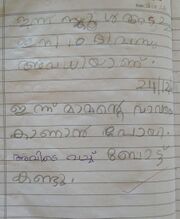 ഇന്ന്
ഇനി 10 ദിവസം
അവധിയാണ്.
24/12
ഇന്ന് മാമന്റെ വാവ
കാണാൻ പോയി.
അവിടെ വച്ച് ബോട്ട്
കണ്ടു.